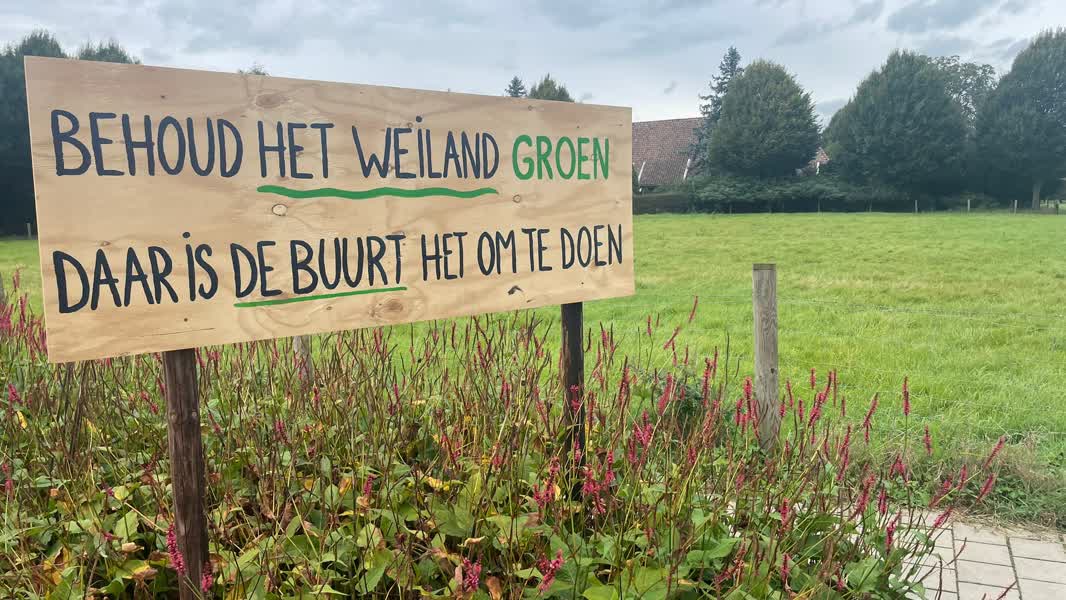 BEHOUD HET WEILAND GROEN
DAAR IS DE BUURT HET OM TE DOEN